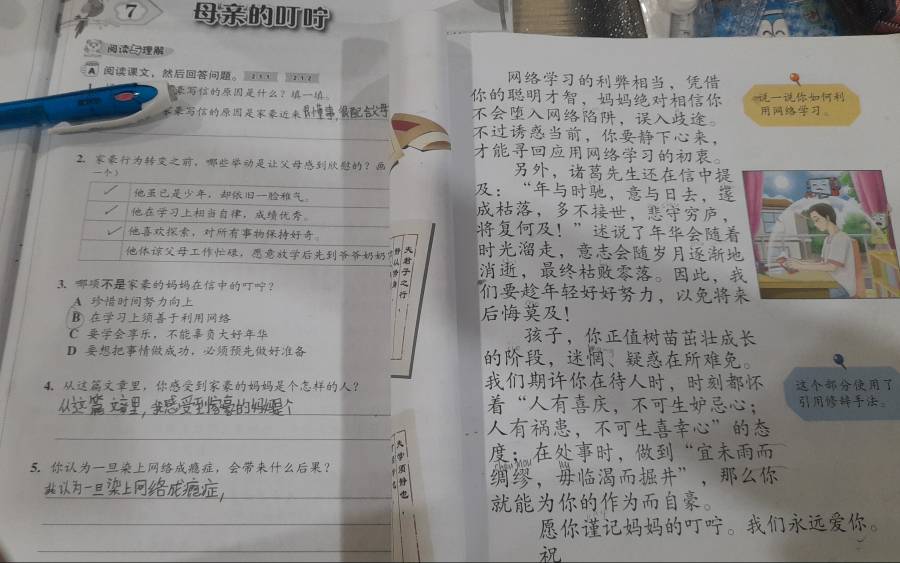 7
母亲的叮咛
阅读与理解
A 阅读课文，然后回答问题。 2.1.1 2.1.2
写信的原因是什么？填一填。
写信的原因是家豪近来
2. 家豪行为转变之前，哪些举动是让父母感到欣慰的？画
一个）
他虽已是少年，却依旧一脸稚气。
他在学习上相当自律，成绩优秀。
他喜欢探索，对所有事物保持好奇。
他体谅父母工作忙碌，愿意放学后先到爷爷奶奶
3. 哪项不是家豪的妈妈在信中的叮咛？
A 珍惜时间努力向上
B 在学习上须善于利用网络
C 要学会享乐，不能辜负大好年华
D 要想把事情做成功，必须预先做好准备
4. 从这篇文章里，你感受到家豪的妈妈是个怎样的人？
从这篇文章里，我感受到家豪的妈妈是个
5. 你认为一旦染上网络成瘾症，会带来什么后果？
我认为一旦染上网络成瘾症，
夫君子之行，
夫学须静也，
网络学习的利弊相当，凭借
你的聪明才智，妈妈绝对相信你
不会堕入网络陷阱，误入歧途。
不过诱惑当前，你要静下心来，
才能寻回应用网络学习的初衷。
另外，诸葛先生还在信中提
及：“年与时驰，意与日去，遂
成枯落，多不接世，悲守穷庐，
将复何及！”述说了年华会随着
时光溜走，意志会随岁月逐渐地
消逝，最终枯败零落。因此，我
们要趁年轻好好努力，以免将来
后悔莫及！
孩子，你正值树苗茁壮成长
的阶段，迷惘、疑惑在所难免。
我们期许你在待人时，时刻都怀
着“人有喜庆，不可生妒忌心；
人有祸患，不可生喜幸心”的态
度；在处事时，做到“宜未雨而
chóu móu wú
绸缪，毋临渴而掘井”，那么你
就能为你的作为而自豪。
愿你谨记妈妈的叮咛。我们永远爱你。
祝
说一说你如何利
用网络学习。
这个部分使用了
引用修辞手法。